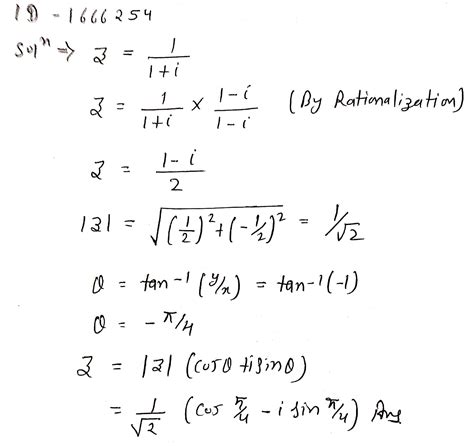 ID - 1666254
Solⁿ ⇒ z = 1/(1+i)
z = 1/(1+i) × (1-i)/(1-i) (By Rationalization)
z = (1-i)/2
|z| = √((1/2)²+(-1/2)²) = 1/√2
θ = tan⁻¹(y/x) = tan-1(-1)
θ = -π/4
z = |z| (cosθ + isinθ)
= 1/√2 (cos π/4 - i sin π/4) Ans